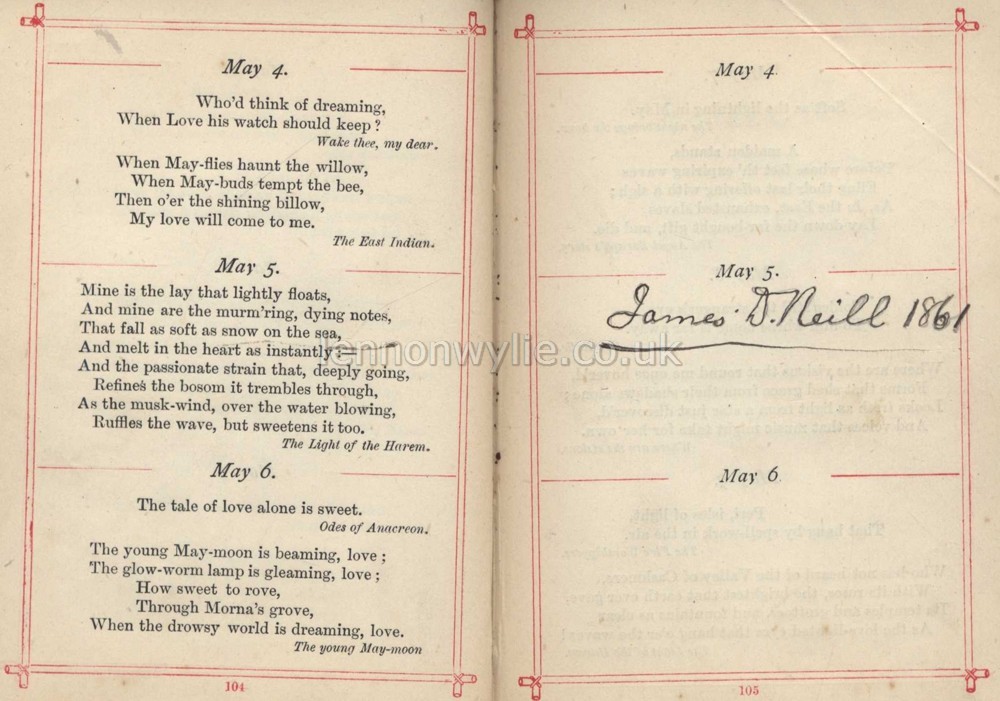 May 4.
Who'd think of dreaming,
When Love his watch should keep?
Wake thee, my dear.
When May-flies haunt the willow,
When May-buds tempt the bee,
Then o'er the shining billow,
My love will come to me.
The East Indian.
May 5.
Mine is the lay that lightly floats,
And mine are the murm'ring, dying notes,
That fall as soft as snow on the sea,
And melt in the heart as instantly:—
And the passionate strain that, deeply going,
Refines the bosom it trembles through,
As the musk-wind, over the water blowing,
Ruffles the wave, but sweetens it too.
The Light of the Harem.
May 6.
The tale of love alone is sweet.
Odes of Anacreon.
The young May-moon is beaming, love;
The glow-worm lamp is gleaming, love;
How sweet to rove,
Through Morna's grove,
When the drowsy world is dreaming, love.
The young May-moon
104
May 4
May 5.
James D. Neill 1861
May 6
105
lennonwylie.co.uk